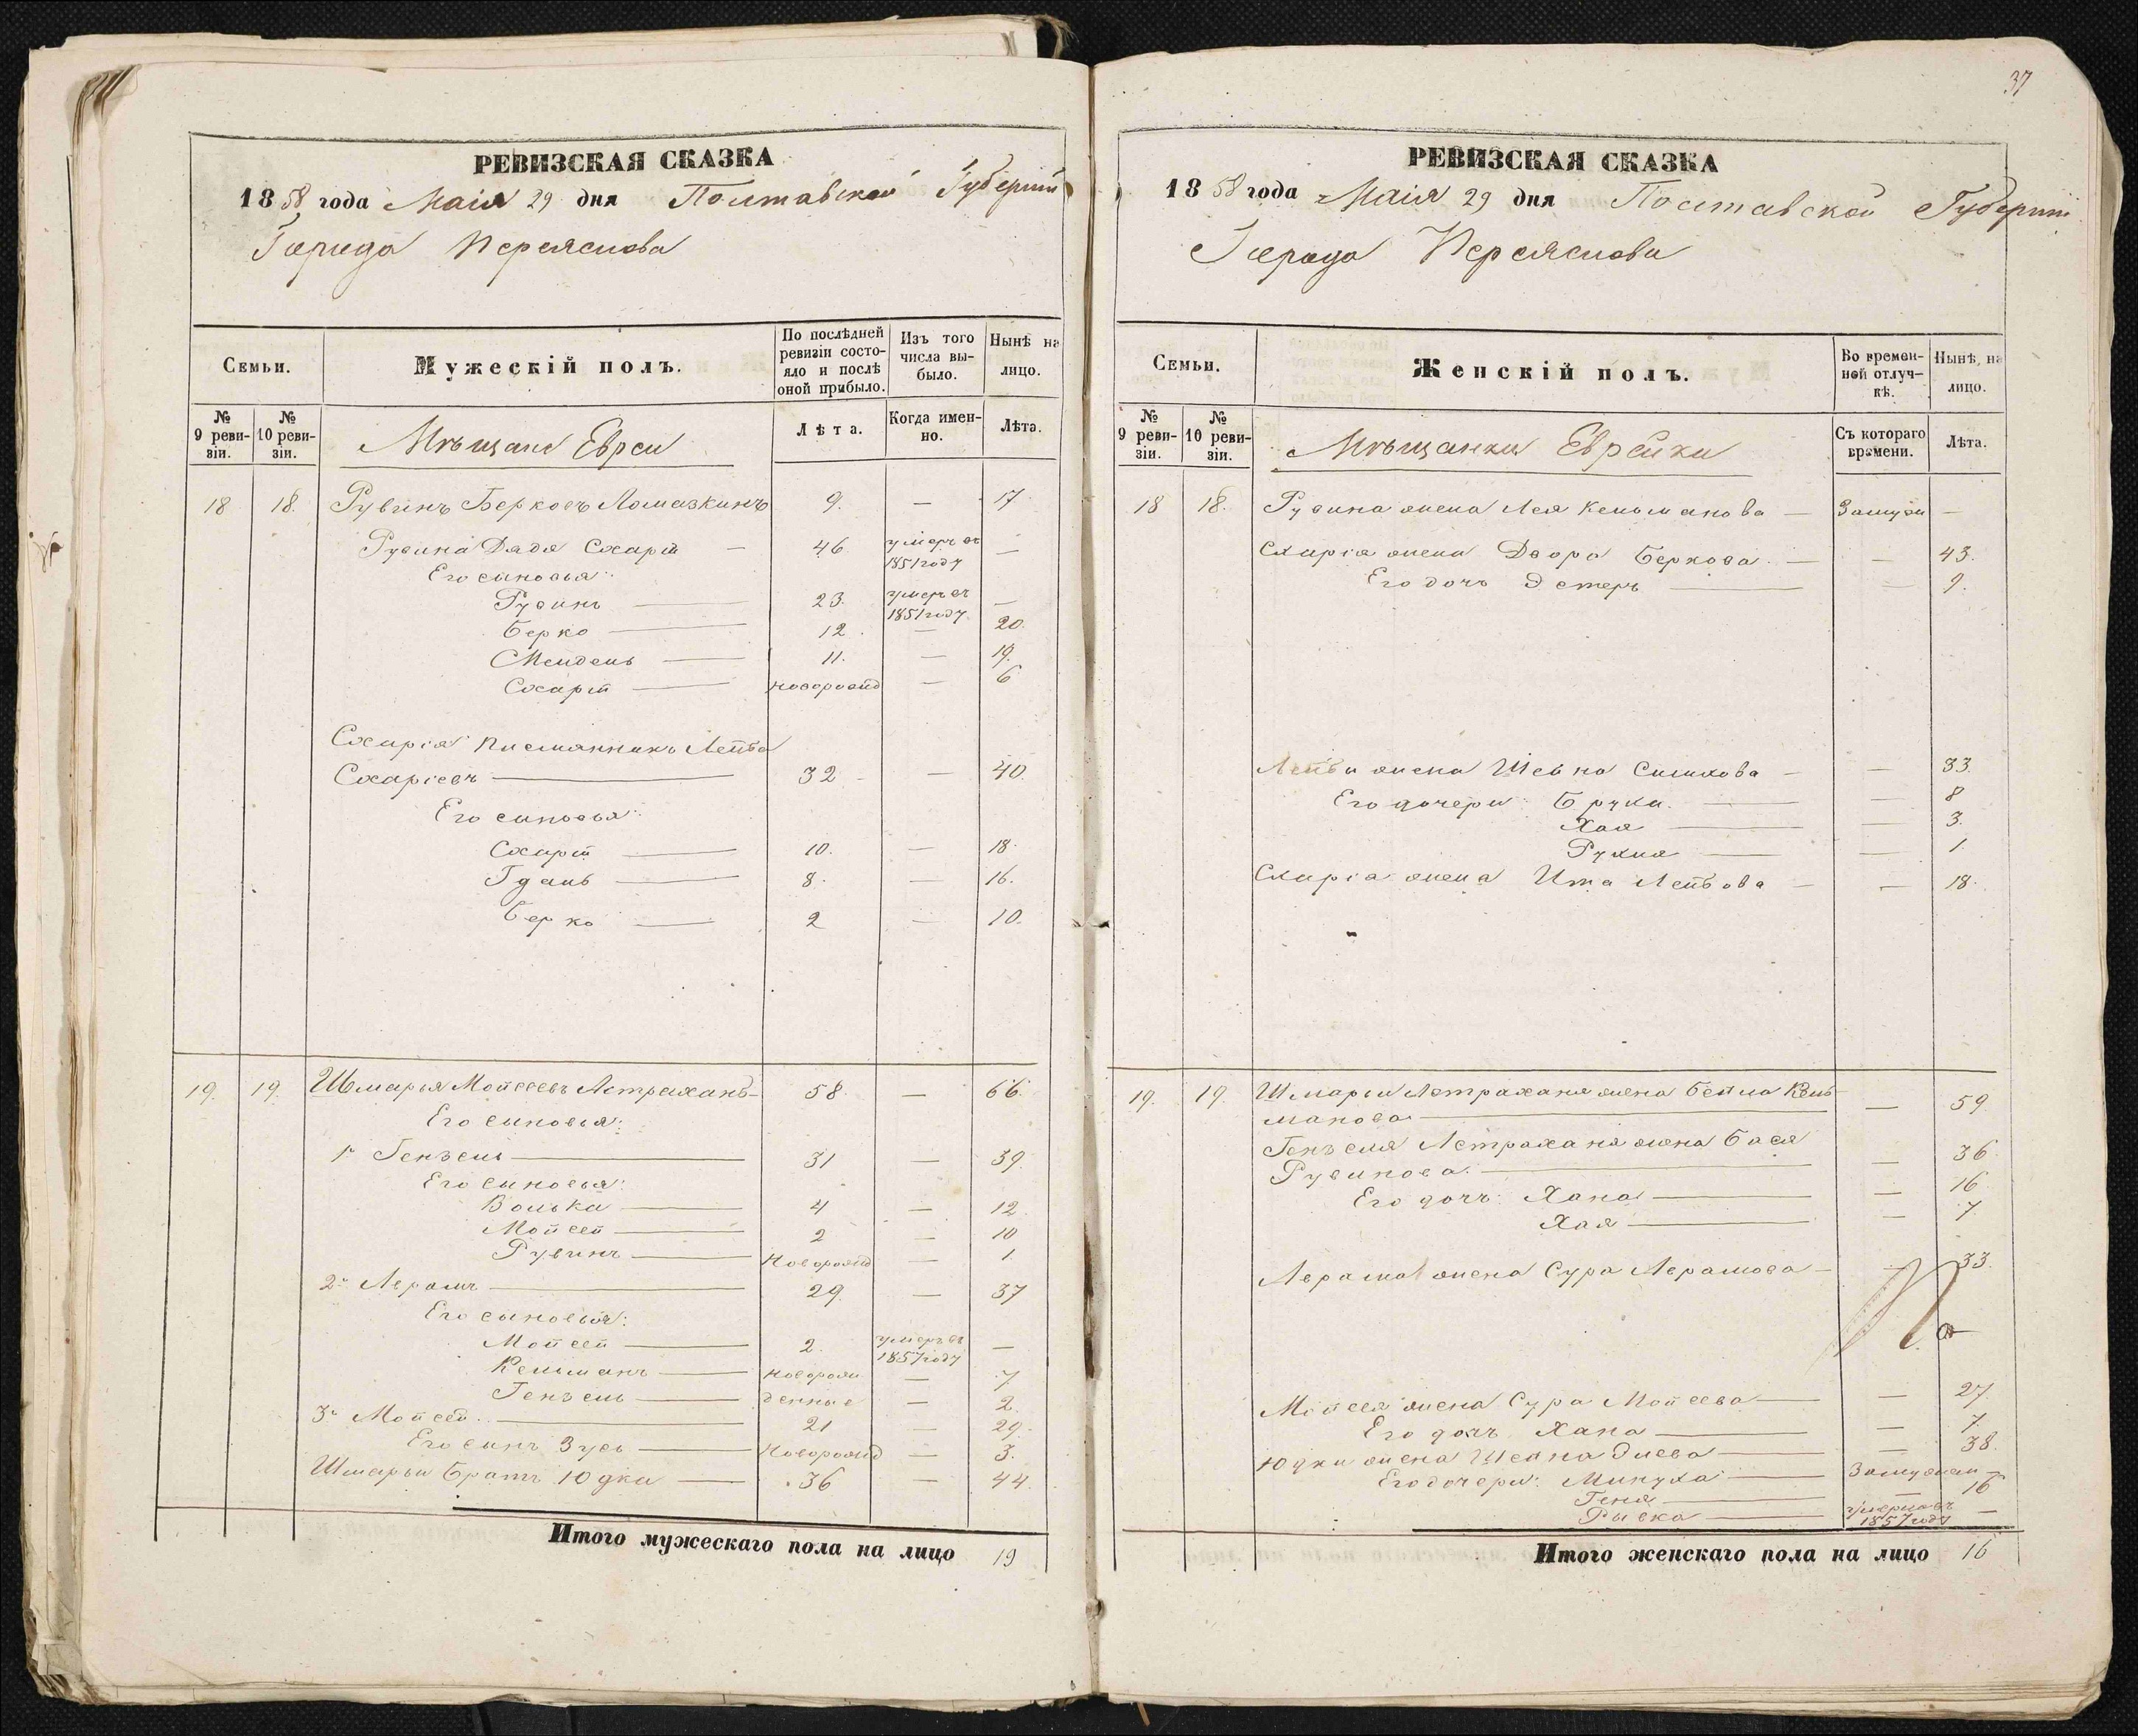 37
РЕВИЗСКАЯ СКАЗКА
1858 года Маія 29 дня Полтавской Губерніи
Города Переяслова
Семьи.
Мужескій полъ.
По послѣдней ревизіи состояло и послѣ оной прибыло.
Изъ того числа выбыло.
Нынѣ на лицо.
№ 9 ревизіи.
№ 10 ревизіи.
Мѣщане Евреи
Лѣта.
Когда именно.
Лѣта.
18 18. Рувинъ Берковъ Ломазкинъ 9. — 17
Рувина Дядя Схарій — 46 умеръ въ 1851 году —
Его сыновья:
Рувинъ — 23. умеръ въ 1851 году —
Берко — 12. — 20.
Мендель — 11. — 19.
Схарій — новорожд — 6
Схарія Лейба
Схаріевъ — 32 — 40.
Его сыновья:
Схарій — 10. — 18.
Гдаль — 8. — 16.
Берко — 2 — 10.
19. 19. Шмарья Мойсеевъ Астраханъ — 58 — 66.
Его сыновья:
1й Гензель — 31 — 39.
Его сыновья:
Волька — 4 — 12.
Мойсей — 2 — 10
Рувинъ — Новорожд — 1.
2й Аврамъ — 29. — 37
Его сыновья:
Мойсей — 2. умеръ въ 1857 году —
Кельманъ — новорож — 7
Гензель — денные — 2.
3й Мойсей — 21 — 29.
Его сынъ Зусь — Новорожд — 3.
Шмарьи братъ Юдка — 36 — 44.
Итого мужескаго пола на лицо 19
РЕВИЗСКАЯ СКАЗКА
1858 года Маія 29 дня Полтавской Губерніи
Города Переяслова
Семьи.
Женскій полъ.
Во временной отлучкѣ.
Нынѣ на лицо.
№ 9 ревизіи.
№ 10 ревизіи.
Мѣщанки Еврейки
Съ котораго времени.
Лѣта.
18 18. Рувина жена Лея Кельманова — Замуж —
Схарія жена Двора Беркова — — 43.
Его дочь Эстеръ — — 9.
Лейбы жена Шейна — — 33.
Его дочери: Бруха — — 8
Хая — — 3.
Рухля — — 1
Схарія жена Ита Лейбова — — 18.
19. 19. Шмарьи Астраханя жена Бейла Кель-
манова — — 59
Гензеля Астраханя жена Бася
Рувинова. — — 36
Его дочь: Хана — — 16
Хая — — 7
Аврама жена Сура Аврамова — — 33.
Мойсея жена Сура Мойсеева — — 27.
Его дочь Хана — — 7.
Юдки жена Шейна — — 38.
Его дочери: Минуха — Замужем —
Геня — — 16
Рыска — умерла въ 1857 году —
Итого женскаго пола на лицо 16